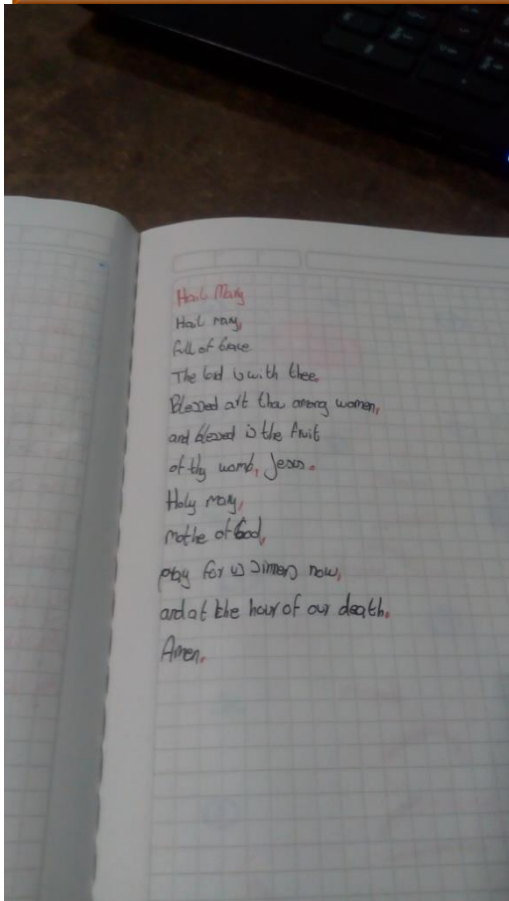 Hail Mary
Hail mary,
full of Grace
The lord is with thee.
Blessed art thou among women,
and blessed is the fruit
of thy womb, Jesus.
Holy mary,
mothe of God,
pray for us sinners now,
and at the hour of our death.
Amen.